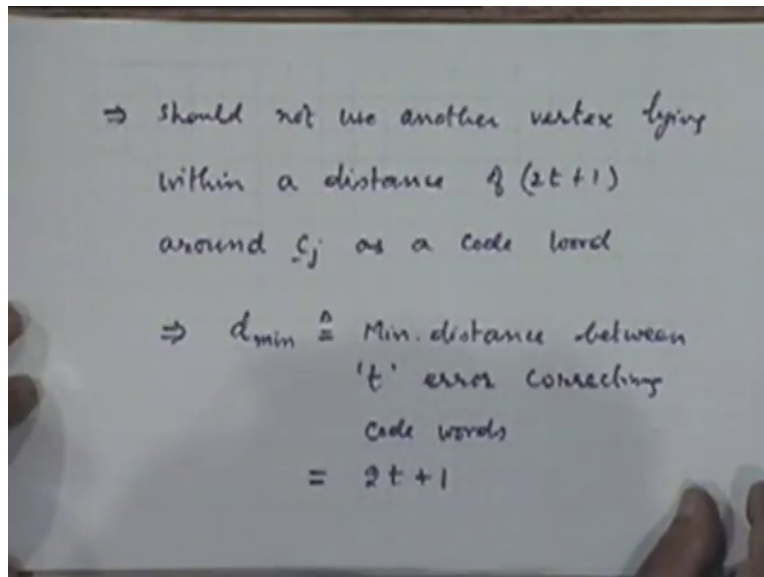 ⇒ should not use another vertex lying
within a distance of (2t+1)
around c_j as a code word
⇒ d_min ≜ Min. distance between
't' error correcting
code words
= 2t+1